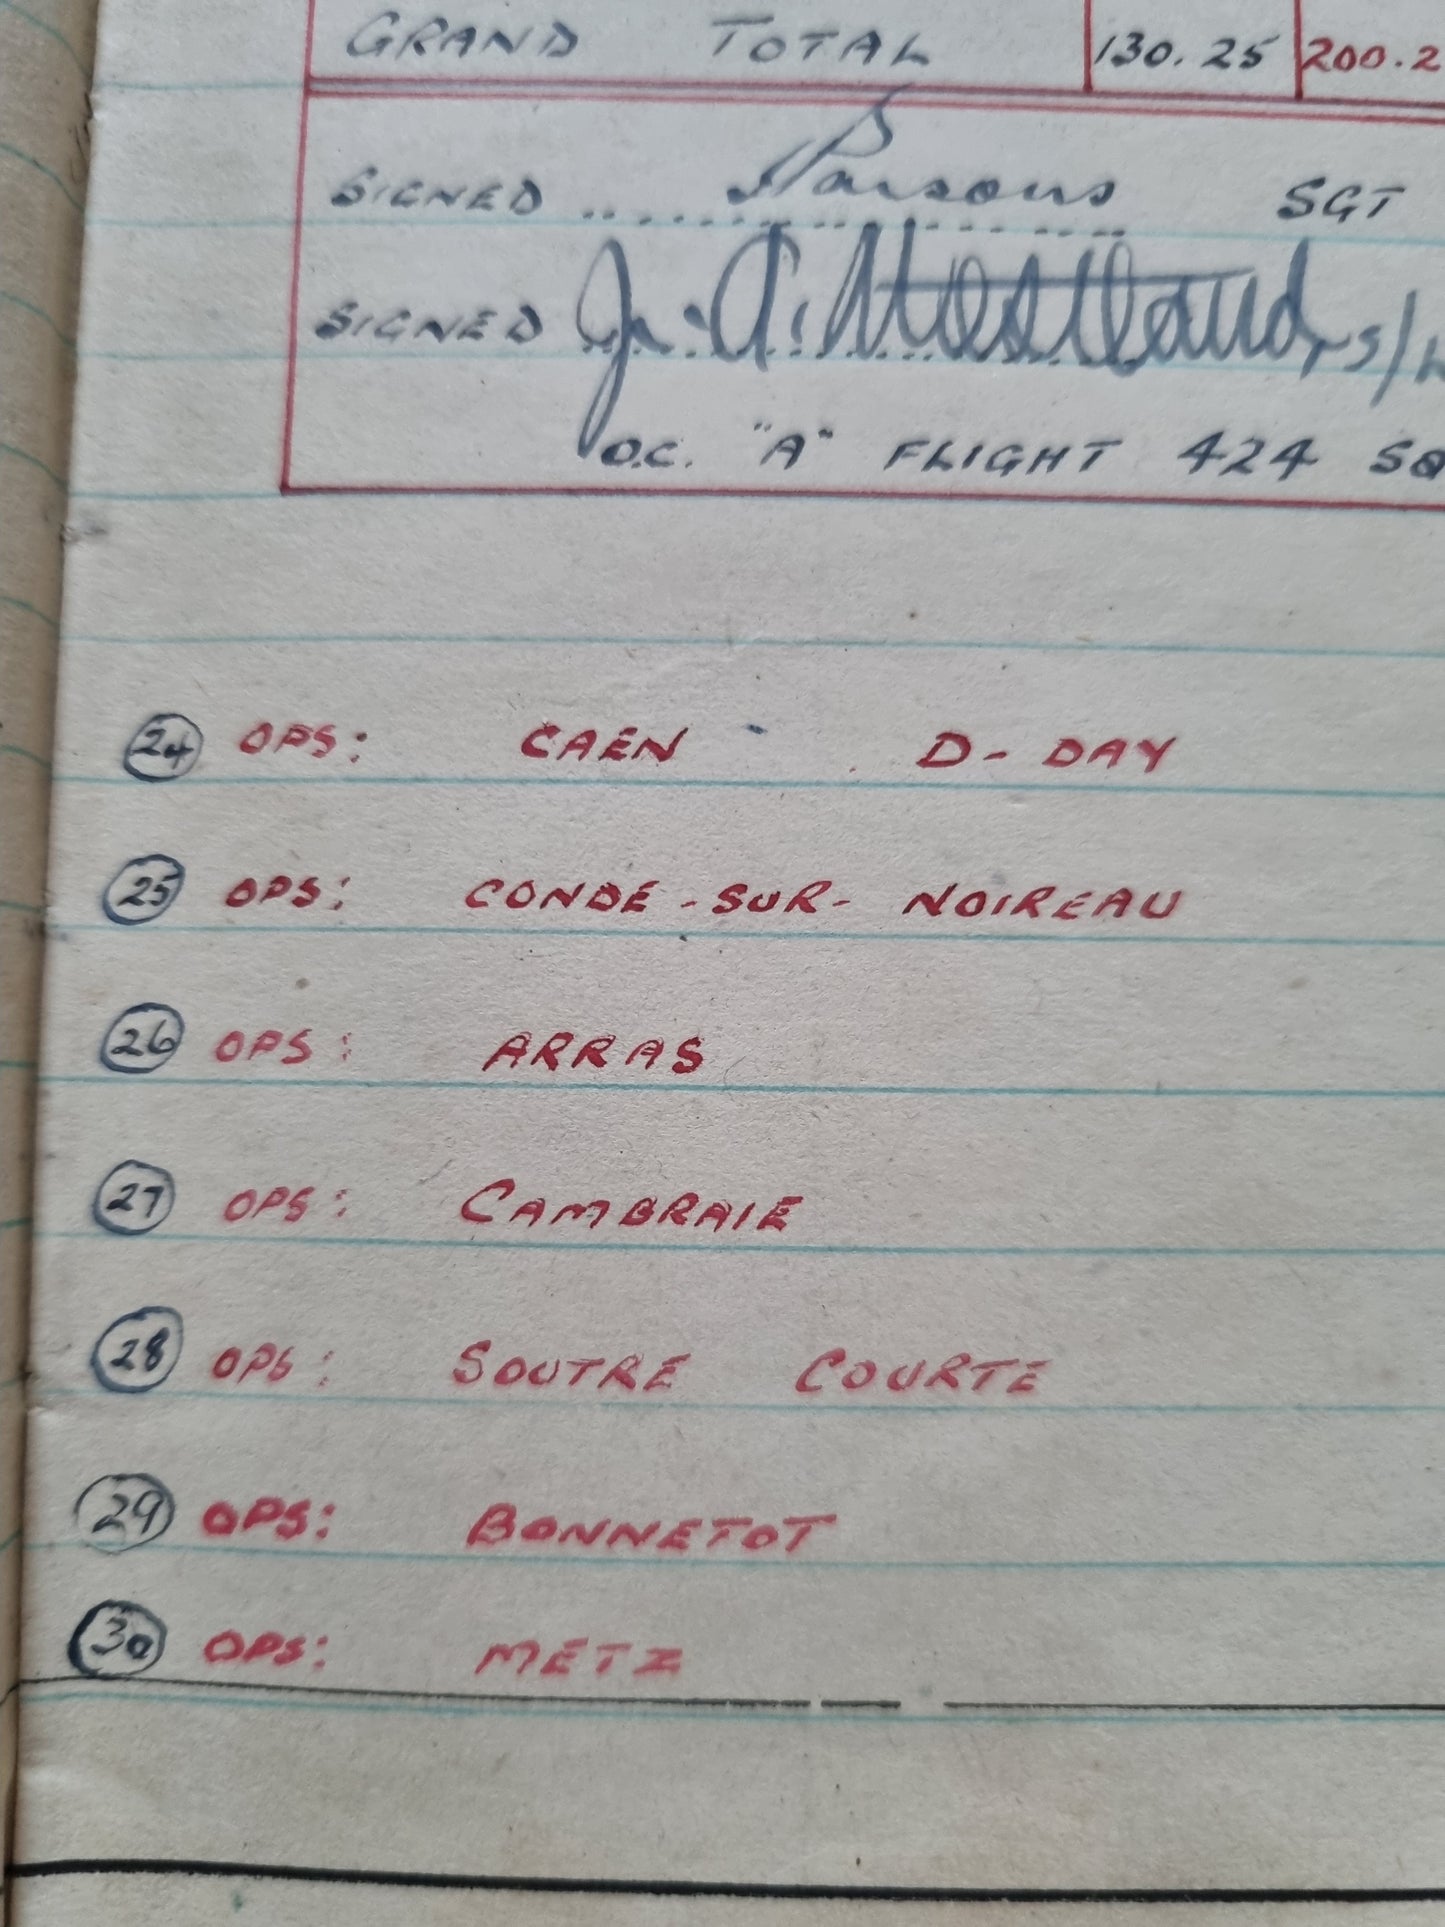 GRAND TOTAL 130.25 200.2
SIGNED Parsons SGT
SIGNED J. A. Westland, S/L
O.C. "A" FLIGHT 424 SQ
24 OPS: CAEN D-DAY
25 OPS: CONDE-SUR-NOIREAU
26 OPS: ARRAS
27 OPS: CAMBRAIE
28 OPS: SOUTRE COURTE
29 OPS: BONNETOT
30 OPS: METZ